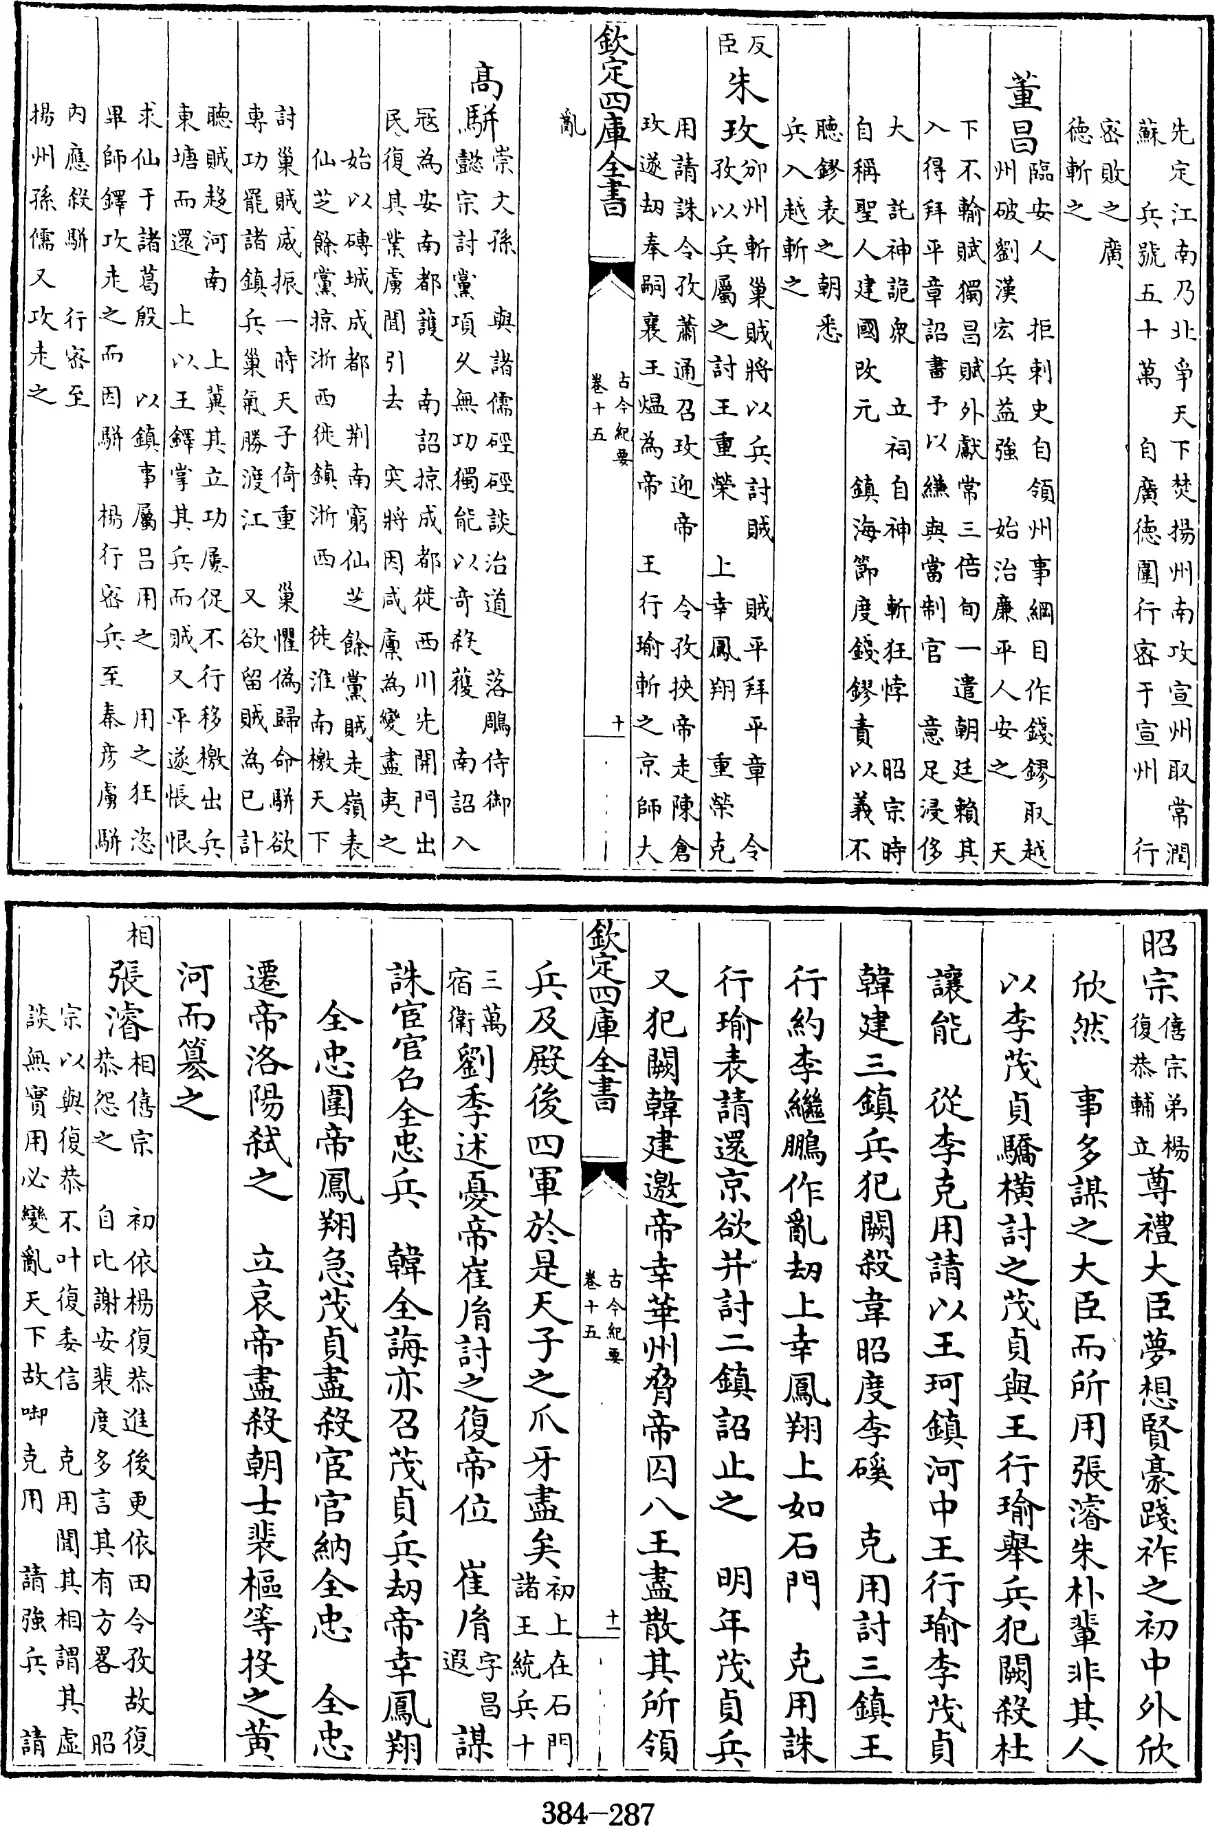 先定江南乃北爭天下焚揚州南攻宣州取常潤
蘇　兵號五十萬　自廣德圍行密于宣州　行
密敗之廣
德斬之
董昌臨安人　拒刺史自領州事綱目作錢鏐取越
州破劉漢宏兵益強　始治廉平人安之　天
下不輸賦獨昌賦外獻常三倍旬一遣朝廷賴其
入得拜平章詔書予以縑與當制官　意足浸侈
大　託神詭衆　立祠自神　斬狂悖　昭宗時
自稱聖人建國改元　鎮海節度錢鏐責以義不
聽鏐表之朝悉
兵入越斬之
反臣
朱玫邠州斬巢賊將以兵討賊　賊平拜平章　令
孜以兵屬之討王重榮　上幸鳳翔　重榮克
用請誅令孜蕭通召玫迎帝　令孜挾帝走陳倉
玫遂刼奉嗣襄王熅為帝　王行瑜斬之京師大
亂
欽定四庫全書
古今紀要
卷十五
十
高駢崇文孫　與諸儒硜硜談治道　落鵰侍御
懿宗討黨項久無功獨能以奇殺獲　南詔入
冦為安南都護　南詔掠成都徙西川先開門出
民復其業虜聞引去　突將因咸廩為變盡夷之
始以磚城成都　荆南窮仙芝餘黨賊走嶺表
仙芝餘黨掠浙西徙鎮浙西　徙淮南檄天下
討巢賊威振一時天子倚重　巢懼偽歸命駢欲
專功罷諸鎮兵巢氣勝渡江　又欲留賊為已計
聽賊趍河南　上冀其立功屢促不行移檄出兵
東塘而還　上以王鐸掌其兵而賊又平遂悵恨
求仙于諸葛殷　以鎮事屬吕用之　用之狂恣
畢師鐸攻走之而因駢　楊行密兵至秦彦虜駢
内應殺駢　行密至
揚州孫儒又攻走之
昭宗僖宗弟楊
復恭輔立尊禮大臣夢想賢豪踐祚之初中外欣
欣然　事多謀之大臣而所用張濬朱朴輩非其人
以李茂貞驕横討之茂貞與王行瑜舉兵犯闕殺杜
讓能　從李克用請以王珂鎮河中王行瑜李茂貞
韓建三鎮兵犯闕殺韋昭度李磎　克用討三鎮王
行約李繼鵬作亂刼上幸鳳翔上如石門　克用誅
行瑜表請還京欲并討二鎮詔止之　明年茂貞兵
又犯闕韓建邀帝幸華州脅帝囚八王盡散其所領
欽定四庫全書
古今紀要
卷十五
十一
兵及殿後四軍於是天子之爪牙盡矣初上在石門
諸王統兵十
三萬
宿衛劉季述憂帝崔胤討之復帝位　崔胤字昌
遐謀
誅宦官召全忠兵　韓全誨亦召茂貞兵刼帝幸鳳翔
全忠圍帝鳳翔急茂貞盡殺宦官納全忠　全忠
遷帝洛陽弑之　立哀帝盡殺朝士裴樞等投之黄
河而簒之
相
張濬相僖宗　初依楊復恭進後更依田令孜故復
恭怨之　自比謝安裴度多言其有方畧　昭
宗以與復恭不叶復委信　克用聞其相謂其虛
談無實用必變亂天下故啣克用　請強兵　請
384-287